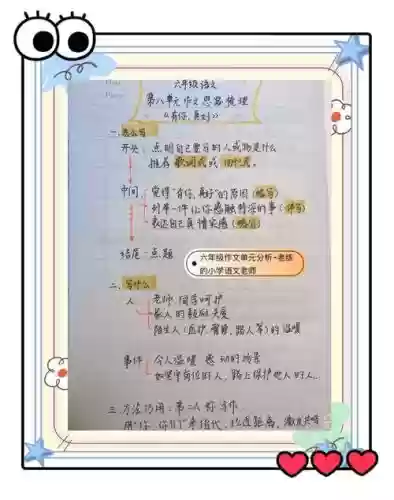 六年级语文
第八单元作文思路梳理
《有你,真好》
一.怎么写
开头: 点明自己要写的人或物是什么
推荐歌词式或
中间: 觉得"有你,真好"的原因(略写)
列举一件让你感触特深的事(详写)
表达自己真情实感(略写)
结尾 点题
六年级作文单元分析-老练的小学语文老师
二、写什么
人 老师、同学呵护
家人的鼓励关爱
陌生人(医护、警察、路人等)的温暖
事件 令人温暖 感动的场景
如坚守岗位的人、路上保护他人的人
三.方法巧用:第二人称写作
用"你、你们"来指代,拉近距离,激发共鸣